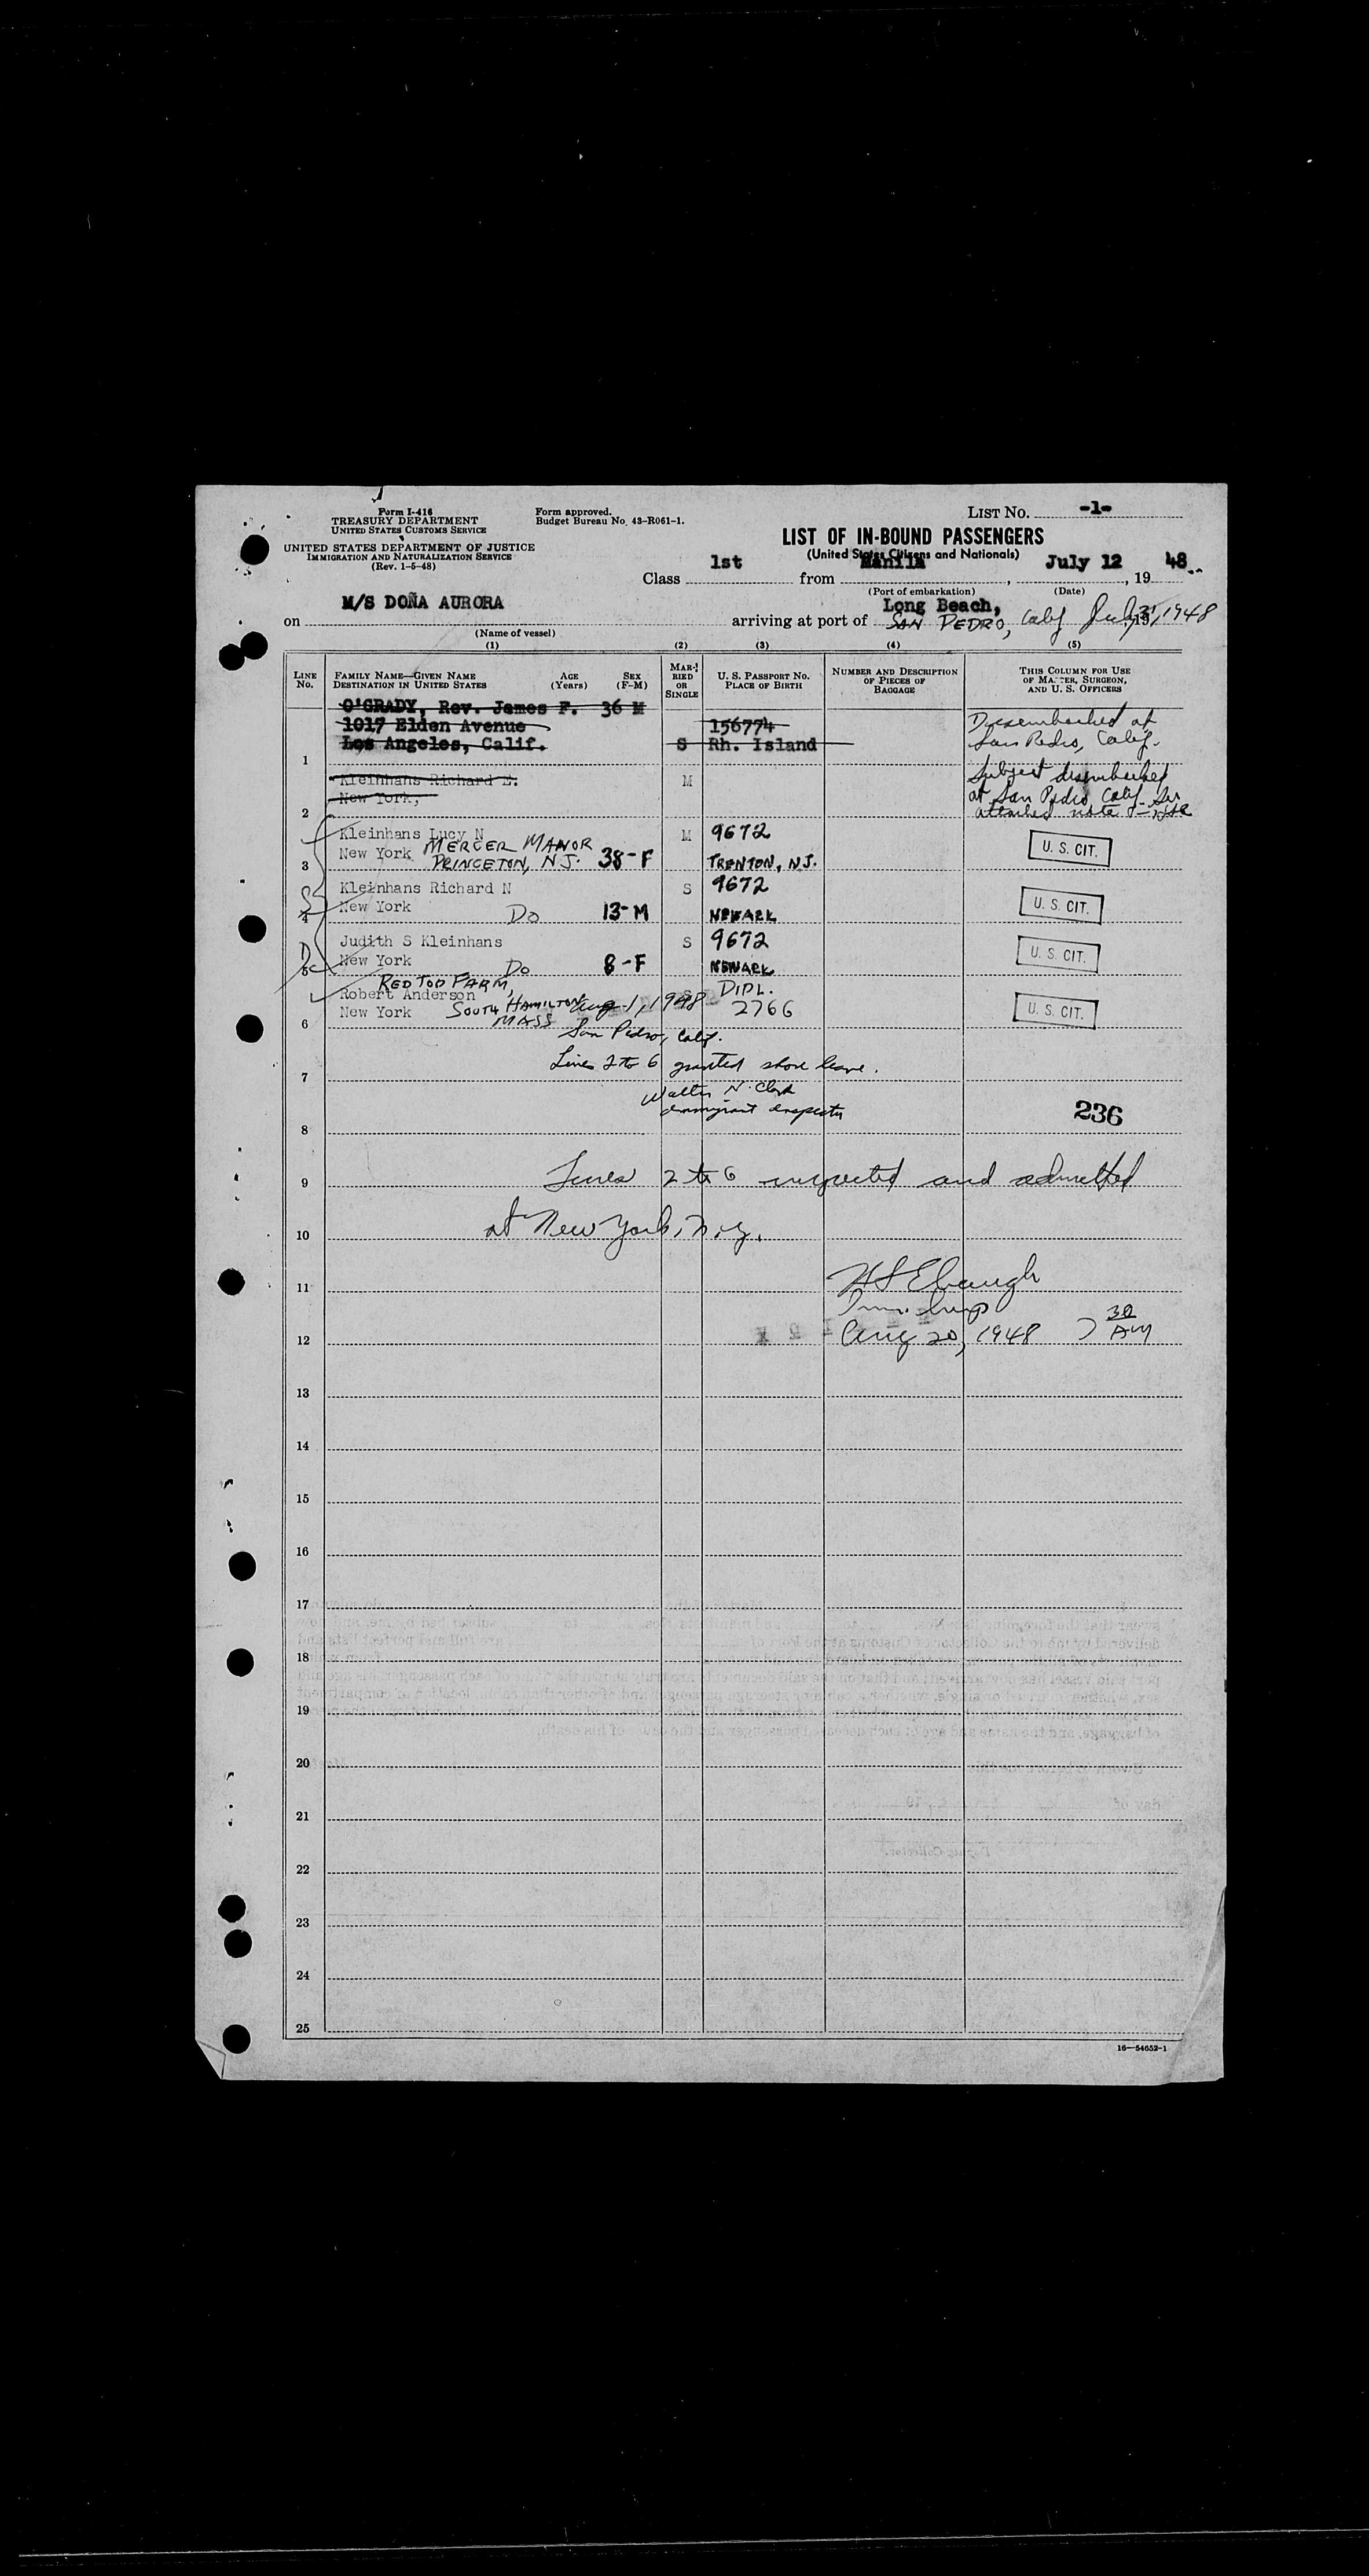 Form I-416
TREASURY DEPARTMENT
UNITED STATES CUSTOMS SERVICE
UNITED STATES DEPARTMENT OF JUSTICE
IMMIGRATION AND NATURALIZATION SERVICE
(Rev. 1-5-48)
Form approved.
Budget Bureau No. 43-R061-1.
LIST NO. -1-
LIST OF IN-BOUND PASSENGERS
(United States Citizens and Nationals)
Class 1st from Manila, July 12, 1948
(Port of embarkation) (Date)
Long Beach,
on M/S DOÑA AURORA arriving at port of SAN PEDRO, Calif July 31, 1948
(Name of vessel)
(1) (2) (3) (4) (5)
LINE NO.
FAMILY NAME—GIVEN NAME
DESTINATION IN UNITED STATES
AGE (Years)
SEX (F-M)
MARRIED OR SINGLE
U. S. PASSPORT NO.
PLACE OF BIRTH
NUMBER AND DESCRIPTION OF PIECES OF BAGGAGE
THIS COLUMN FOR USE OF MASTER, SURGEON, AND U. S. OFFICERS
O'GRADY, Rev. James F. 36 M
1017 Elden Avenue 156774 Disembarked at
Los Angeles, Calif. S Rh. Island San Pedro, Calif.
1
Kleinhans Richard E. M Subject disembarked
New York, at San Pedro, Calif. See
2 attached note
Kleinhans Lucy N M 9672
New York MERCER MANOR U. S. CIT.
3 PRINCETON, N.J. 38-F TRENTON, N.J.
Kleinhans Richard N S 9672
New York U. S. CIT.
4 Do 13-M NEWARK
Judith S Kleinhans S 9672
New York U. S. CIT.
5 Do 8-F NEWARK
RED TOP FARM, DIPL.
Robert Anderson Aug-1, 1948 2766
New York SOUTH HAMILTON U. S. CIT.
6 MASS
San Pedro, Calif.
Lines 2 to 6 granted shore leave.
7
Walter N. Clark
Immigrant Inspector
236
8
9 Lines 2 to 6 inspected and admitted
10 at New York, N.Y.
11 H S Ebaugh
Imm. Insp
12 Aug 20, 1948 7 30 AM
13
14
15
16
17
18
19
20
21
22
23
24
25
16—54652-1